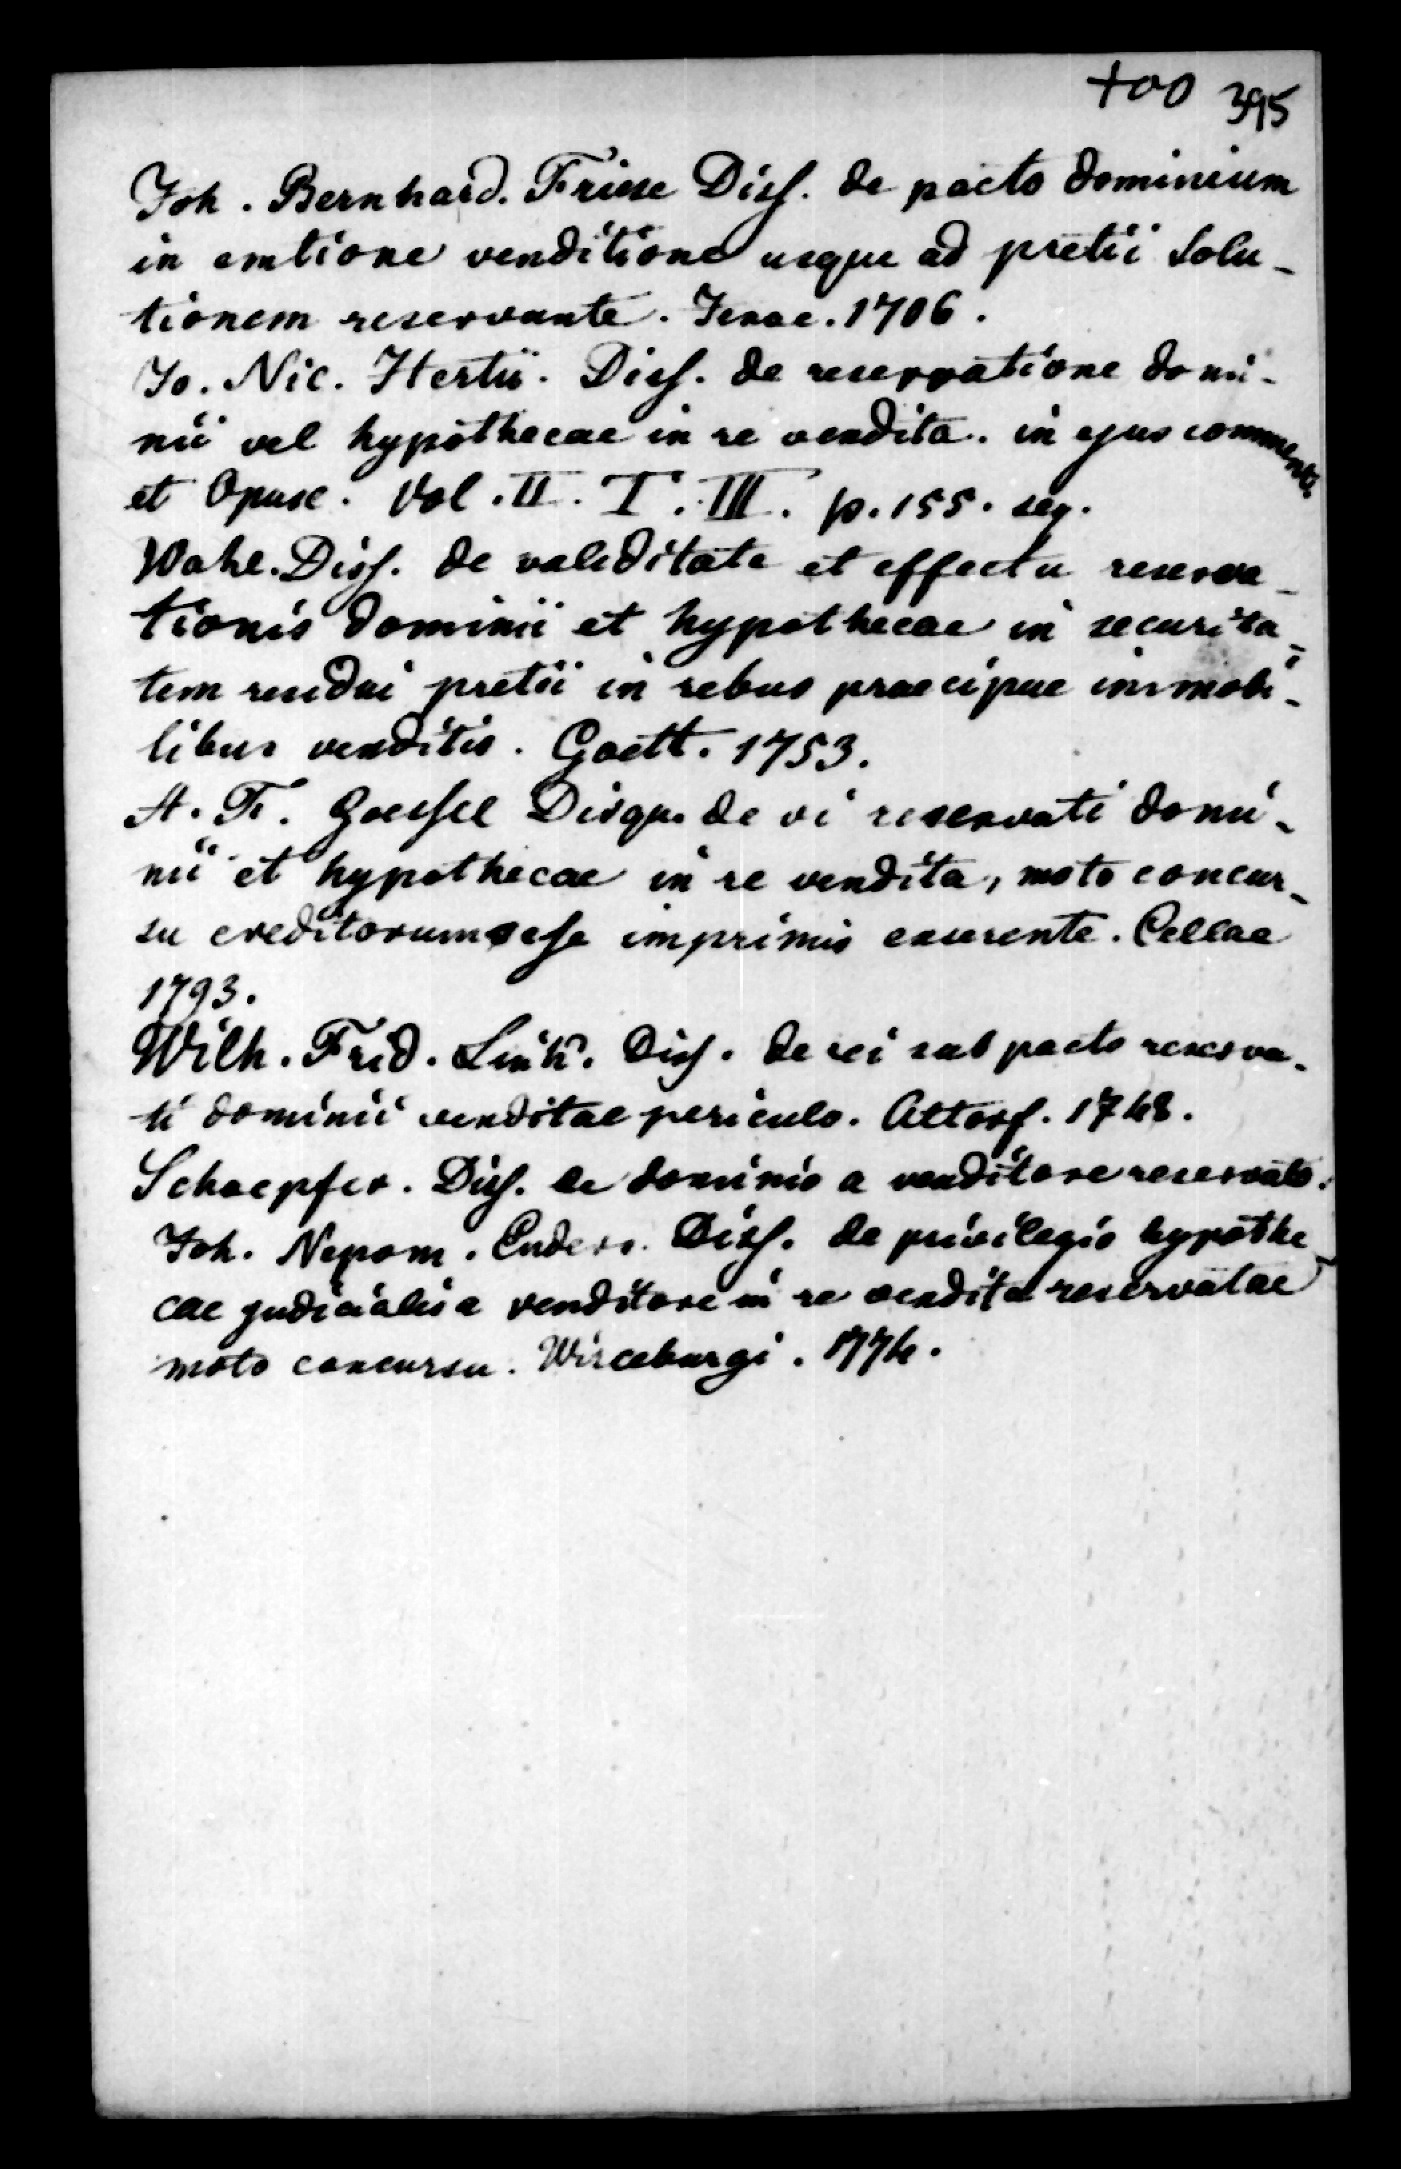 +00 395
Joh. Bernhard. Friese Diss. de pacto dominium
in emtione venditione usque ad pretii Solu-
tionem reservante. Jenae. 1706.
Jo. Nic. Hertii. Diss. de reservatione domi-
nii vel hypothecae in re vendita. in ejus comment.
et Opusc. Vol. II. T. III. p. 155. seq.
Wahl. Diss. de validitate et effectu reserva-
tionis dominii et hypothecae in securita-
tem residui pretii in rebus praecipue immobi-
libus venditis. Goett. 1753.
A. F. Goessel Disqu. de vi reservati domi-
nii et hypothecae in re vendita, moto concur-
su creditorum sese imprimis exserente. Cellae
1793.
Wilh. Frid. Link. Diss. de rei sub pacto reserva-
ti dominii venditae periculo. Altorf. 1748.
Schoepfer. Diss. de dominio a venditore reservato.
Joh. Nepom. Enders. Diss. de privilegio hypothe-
cae judicialis a venditore in re vendita reservatae
moto concursu. Wirceburgi. 1774.